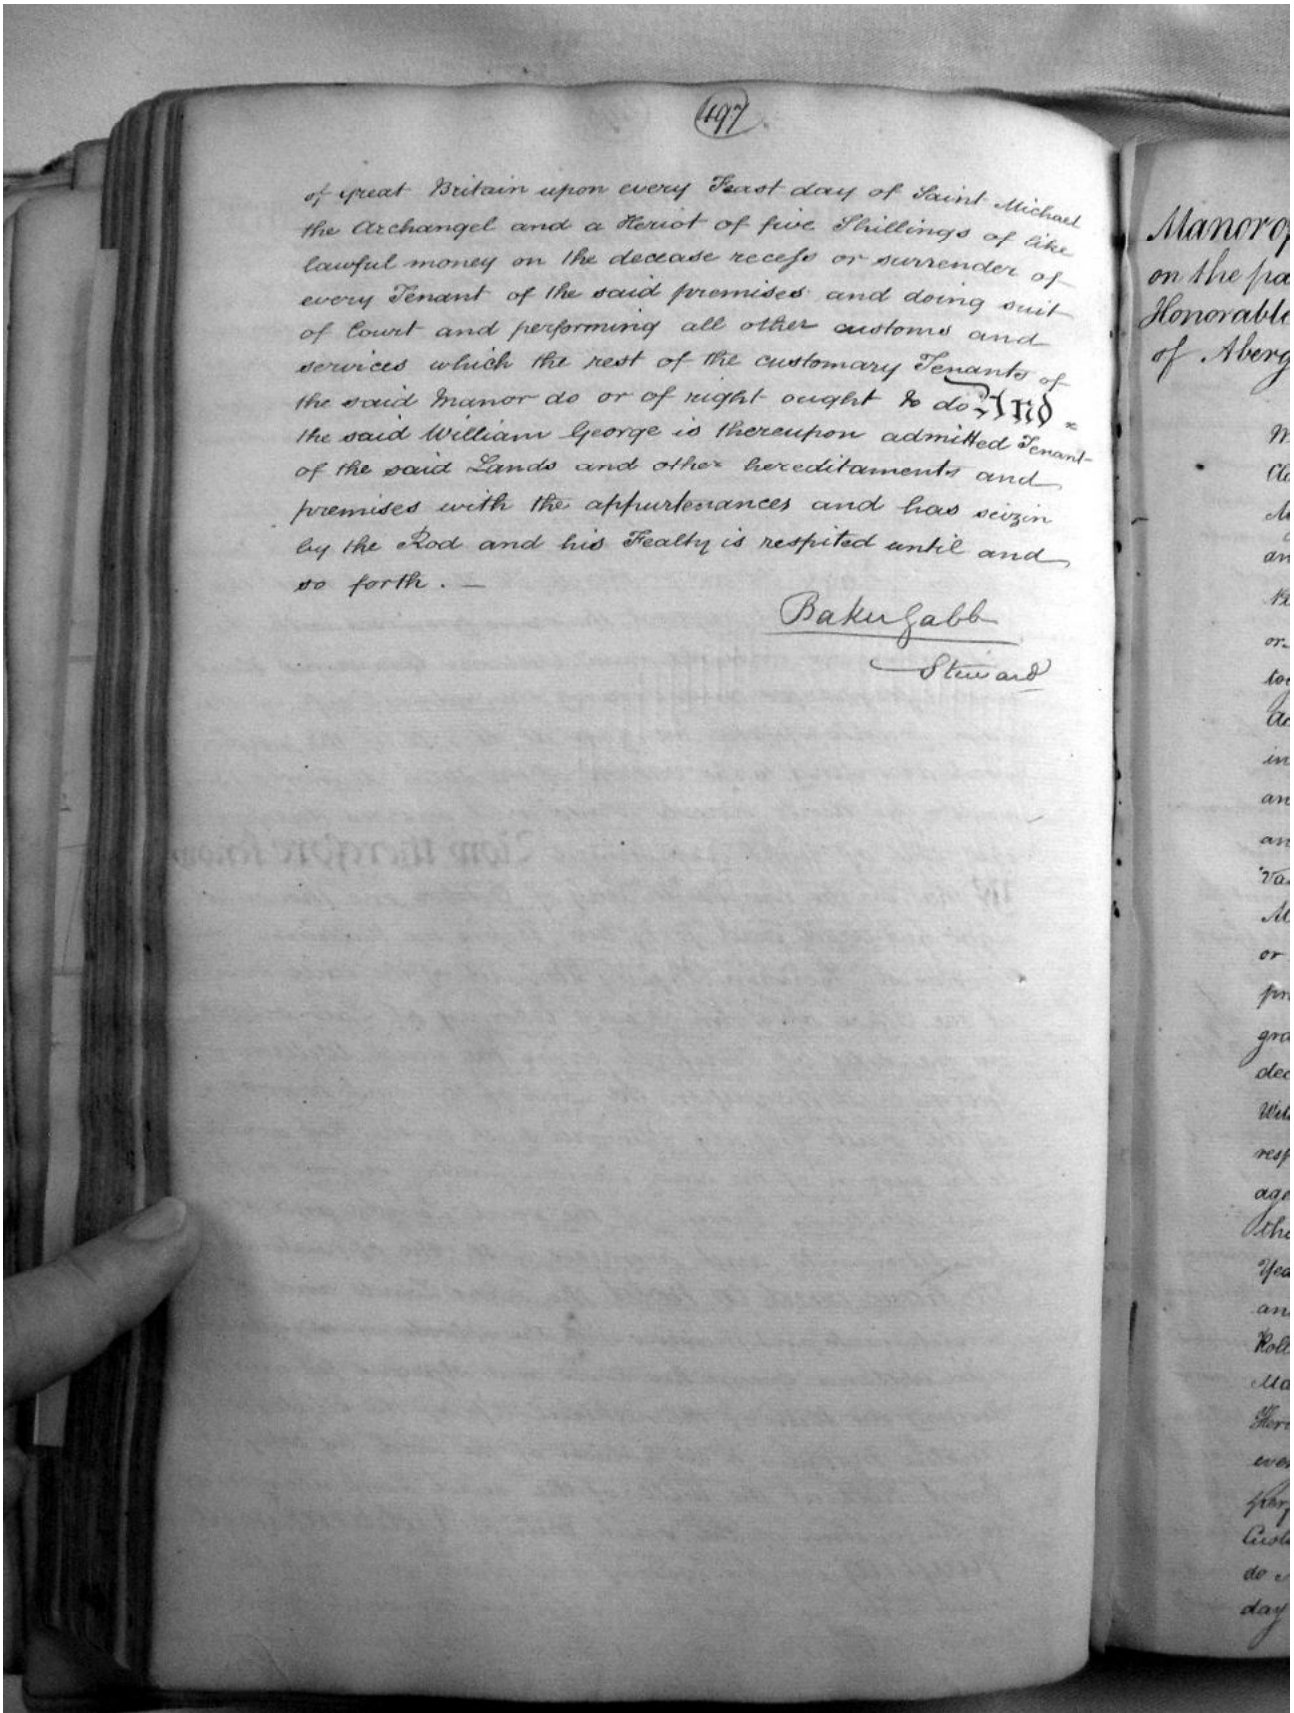 497
of great Britain upon every Feast day of Saint Michael
the Archangel and a Heriot of five Shillings of like
lawful money on the decease recess or surrender of
every Tenant of the said premises and doing suit
of Court and performing all other customs and
services which the rest of the customary Tenants of
the said Manor do or of right ought to do And
the said William George is thereupon admitted Tenant
of the said Lands and other hereditaments and
premises with the appurtenances and has seizin
by the Rod and his Fealty is respited until and
so forth. —
Baker Gabb
Steward
Manor of
on the pa
Honorable
of Aberg
an
or
too
in
an
an
or
pre
gra
dec
resp
age
the
Yea
and
Roll
Ma
Heri
ever
Custo
do
day